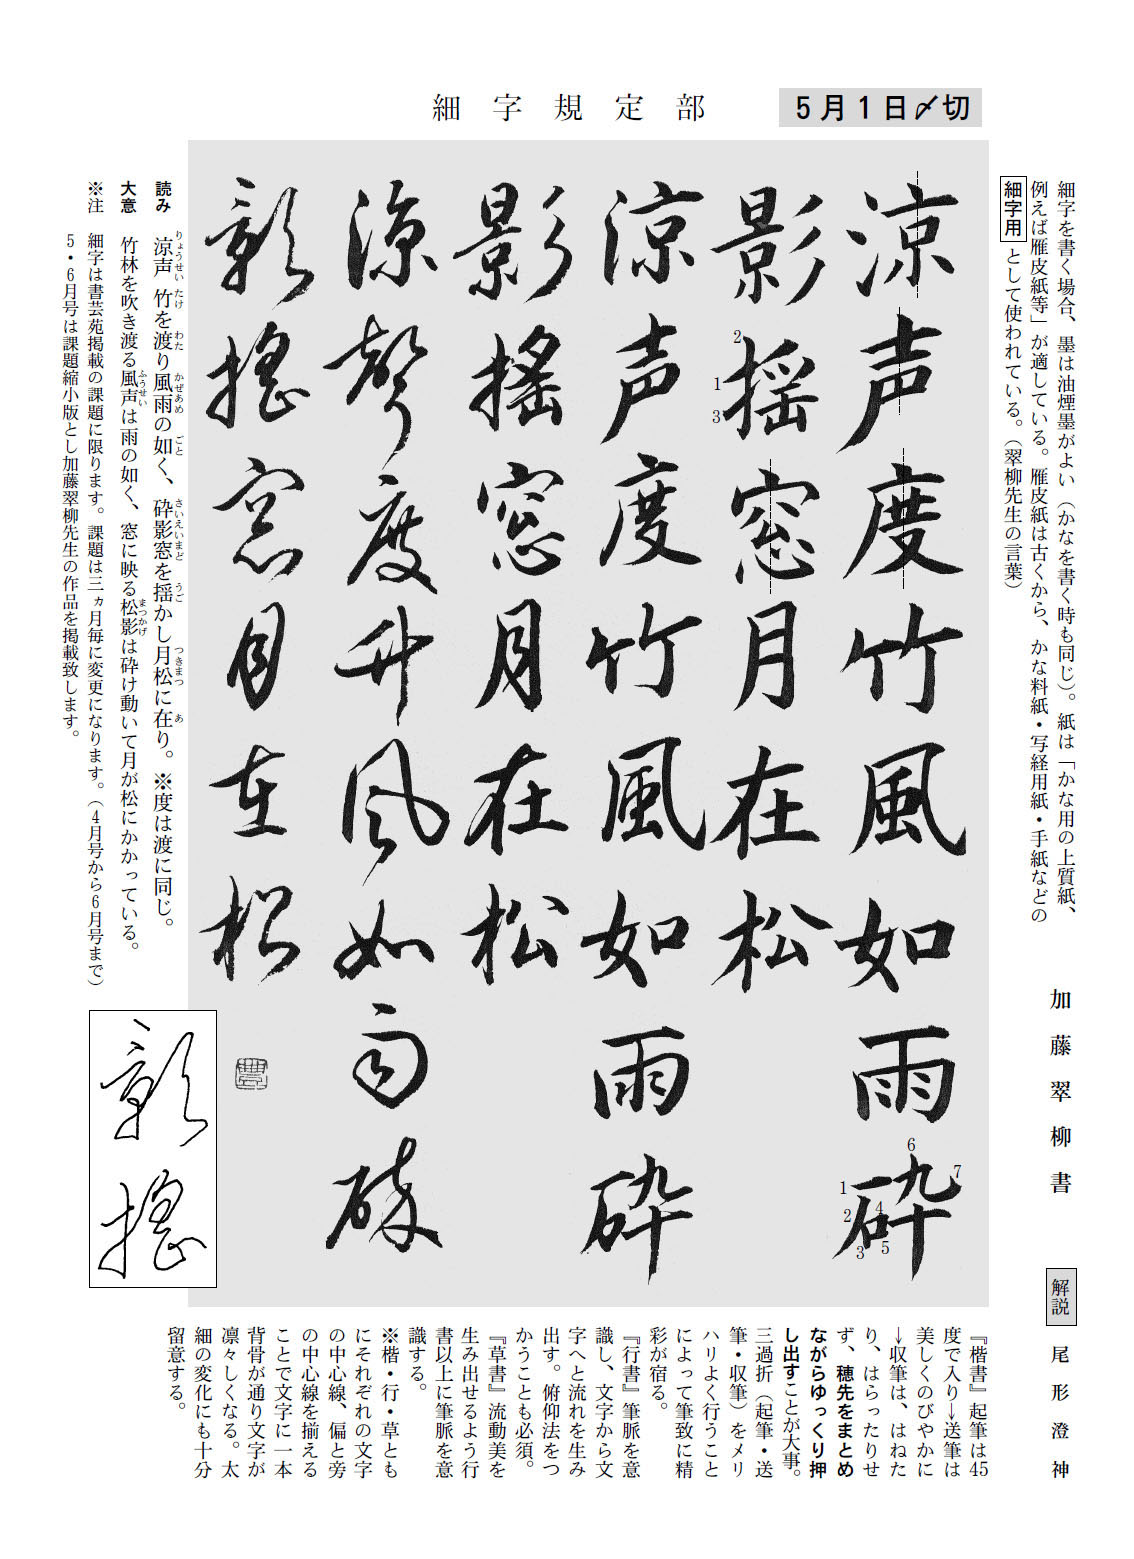 細字規定部
5月1日〆切
細字を書く場合、墨は油煙墨がよい（かなを書く時も同じ）。紙は「かな用の上質紙、
例えば雁皮紙等」が適している。雁皮紙は古くから、かな料紙・写経用紙・手紙などの
細字用として使われている。（翠柳先生の言葉）
加藤翠柳書
涼声度竹風如雨砕
影揺窓月在松
涼声度竹風如雨砕
影搖窓月在松
涼聲度竹風如雨砕
影搖窓月在松
1
2
3
4
5
6
7
1
2
3
読み 涼声竹を渡り風雨の如く、砕影窓を揺かし月松に在り。※度は渡に同じ。
りょうせい たけ わた かぜあめ ごと さいえいまど うご つきまつ あ
大意 竹林を吹き渡る風声は雨の如く、窓に映る松影は砕け動いて月が松にかかっている。
ふうせい まつかげ
※注 細字は書芸苑掲載の課題に限ります。課題は三ヵ月毎に変更になります。（4月号から6月号まで）
5・6月号は課題縮小版とし加藤翠柳先生の作品を掲載致します。
影搖
解説 尾形澄神
『楷書』起筆は45
度で入り→送筆は
美しくのびやかに
→収筆は、はねた
り、はらったりせ
ず、穂先をまとめ
ながらゆっくり押
し出すことが大事。
三過折（起筆・送
筆・収筆）をメリ
ハリよく行うこと
によって筆致に精
彩が宿る。
『行書』筆脈を意
識し、文字から文
字へと流れを生み
出す。俯仰法をつ
かうことも必須。
『草書』流動美を
生み出せるよう行
書以上に筆脈を意
識する。
※楷・行・草とも
にそれぞれの文字
の中心線、偏と旁
の中心線を揃える
ことで文字に一本
背骨が通り文字が
凛々しくなる。太
細の変化にも十分
留意する。